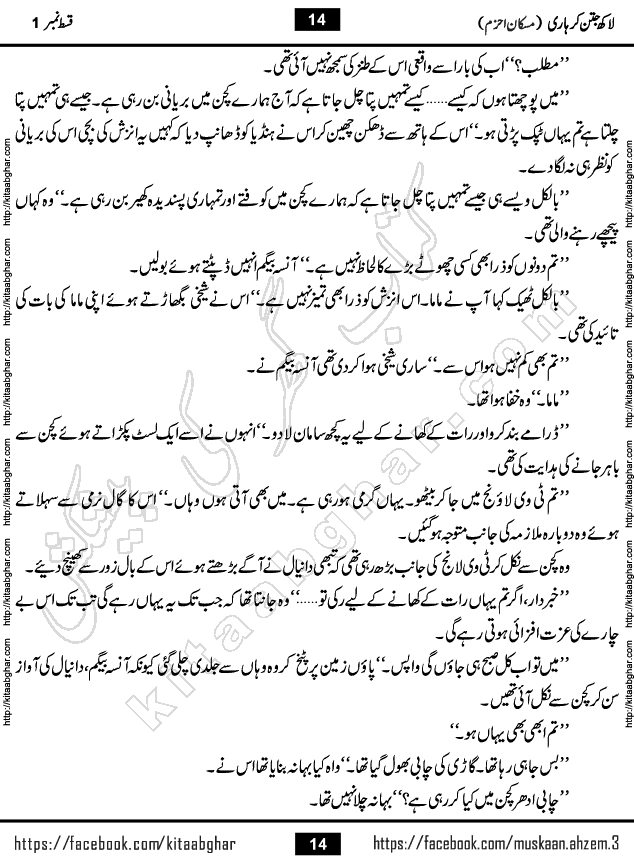 لاکھ جتن کر ہاری (مسکان احزم)
14
قسط نمبر 1
’’مطلب؟‘‘ اب کی بار اسے واقعی اس کے طنز کی سمجھ نہیں آئی تھی۔
’’میں پوچھتا ہوں کہ کیسے...... کیسے تمہیں پتا چل جاتا ہے کہ آج ہمارے کچن میں بریانی بن رہی ہے۔ جیسے ہی تمہیں پتا
چلتا ہے تم یہاں ٹپک پڑتی ہو۔‘‘ اس کے ہاتھ سے ڈھکن چھین کر اس نے ہنڈیا کو ڈھانپ دیا کہ کہیں یہ انزش کی بچی اس کی بریانی
کو نظر ہی نہ لگا دے۔
’’بالکل ویسے ہی جیسے تمہیں پتا چل جاتا ہے کہ ہمارے کچن میں کوفتے اور تمہاری پسندیدہ کھیر بن رہی ہے۔‘‘ وہ کہاں
پیچھے رہنے والی تھی۔
’’تم دونوں کو ذرا بھی کسی چھوٹے بڑے کا لحاظ نہیں ہے۔‘‘ آنسہ بیگم انہیں ڈپٹتے ہوئے بولیں۔
’’بالکل ٹھیک کہا آپ نے ماما۔ اس انزش کو ذرا بھی تمیز نہیں ہے۔‘‘ اس نے شیخی بگھاڑتے ہوئے اپنی ماما کی بات کی
تائید کی تھی۔
’’تم بھی کم نہیں ہو اس سے۔‘‘ ساری شیخی ہوا کر دی تھی آنسہ بیگم نے۔
’’ماما۔‘‘ وہ خفا ہوا تھا۔
’’ڈرامے بند کرو اور رات کے کھانے کے لیے یہ کچھ سامان لا دو۔‘‘ انہوں نے اسے ایک لسٹ پکڑاتے ہوئے کچن سے
باہر جانے کی ہدایت کی تھی۔
’’تم ٹی وی لاؤنج میں جا کر بیٹھو۔ یہاں گرمی ہو رہی ہے۔ میں بھی آتی ہوں وہاں۔‘‘ اس کا گال نرمی سے سہلاتے
ہوئے وہ دوبارہ ملازمہ کی جانب متوجہ ہو گئیں۔
وہ کچن سے نکل کر ٹی وی لانج کی جانب بڑھ رہی تھی کہ تبھی دانیال نے آگے بڑھتے ہوئے اس کے بال زور سے کھینچ دیئے۔
’’خبردار، اگر تم یہاں رات کے کھانے کے لیے رکی تو......‘‘ وہ جانتا تھا کہ جب تک یہ یہاں رہے گی تب تک اس بے
چارے کی عزت افزائی ہوتی رہے گی۔
’’میں تو اب کل صبح ہی جاؤں گی واپس۔‘‘ پاؤں زمین پر پٹخ کر وہ وہاں سے جلدی چلی گئی کیونکہ آنسہ بیگم، دانیال کی آواز
سن کر کچن سے نکل آئی تھیں۔
’’تم ابھی بھی یہاں ہو۔‘‘
’’بس جا ہی رہا تھا۔ گاڑی کی چابی بھول گیا تھا۔‘‘ واہ کیا بہانہ بنایا تھا اس نے۔
’’چابی ادھر کچن میں کیا کر رہی ہے؟‘‘ بہانہ چلا نہیں تھا۔
کتاب گھر کی پیشکش
kitaabghar.com
http://kitaabghar.com http://kitaabghar.com http://kitaabghar.com http://kitaabghar.com http://kitaabghar.com http://kitaabghar.com
http://kitaabghar.com http://kitaabghar.com http://kitaabghar.com http://kitaabghar.com http://kitaabghar.com http://kitaabghar.com
https://facebook.com/kitaabghar
14
https://facebook.com/muskaan.ahzem.3